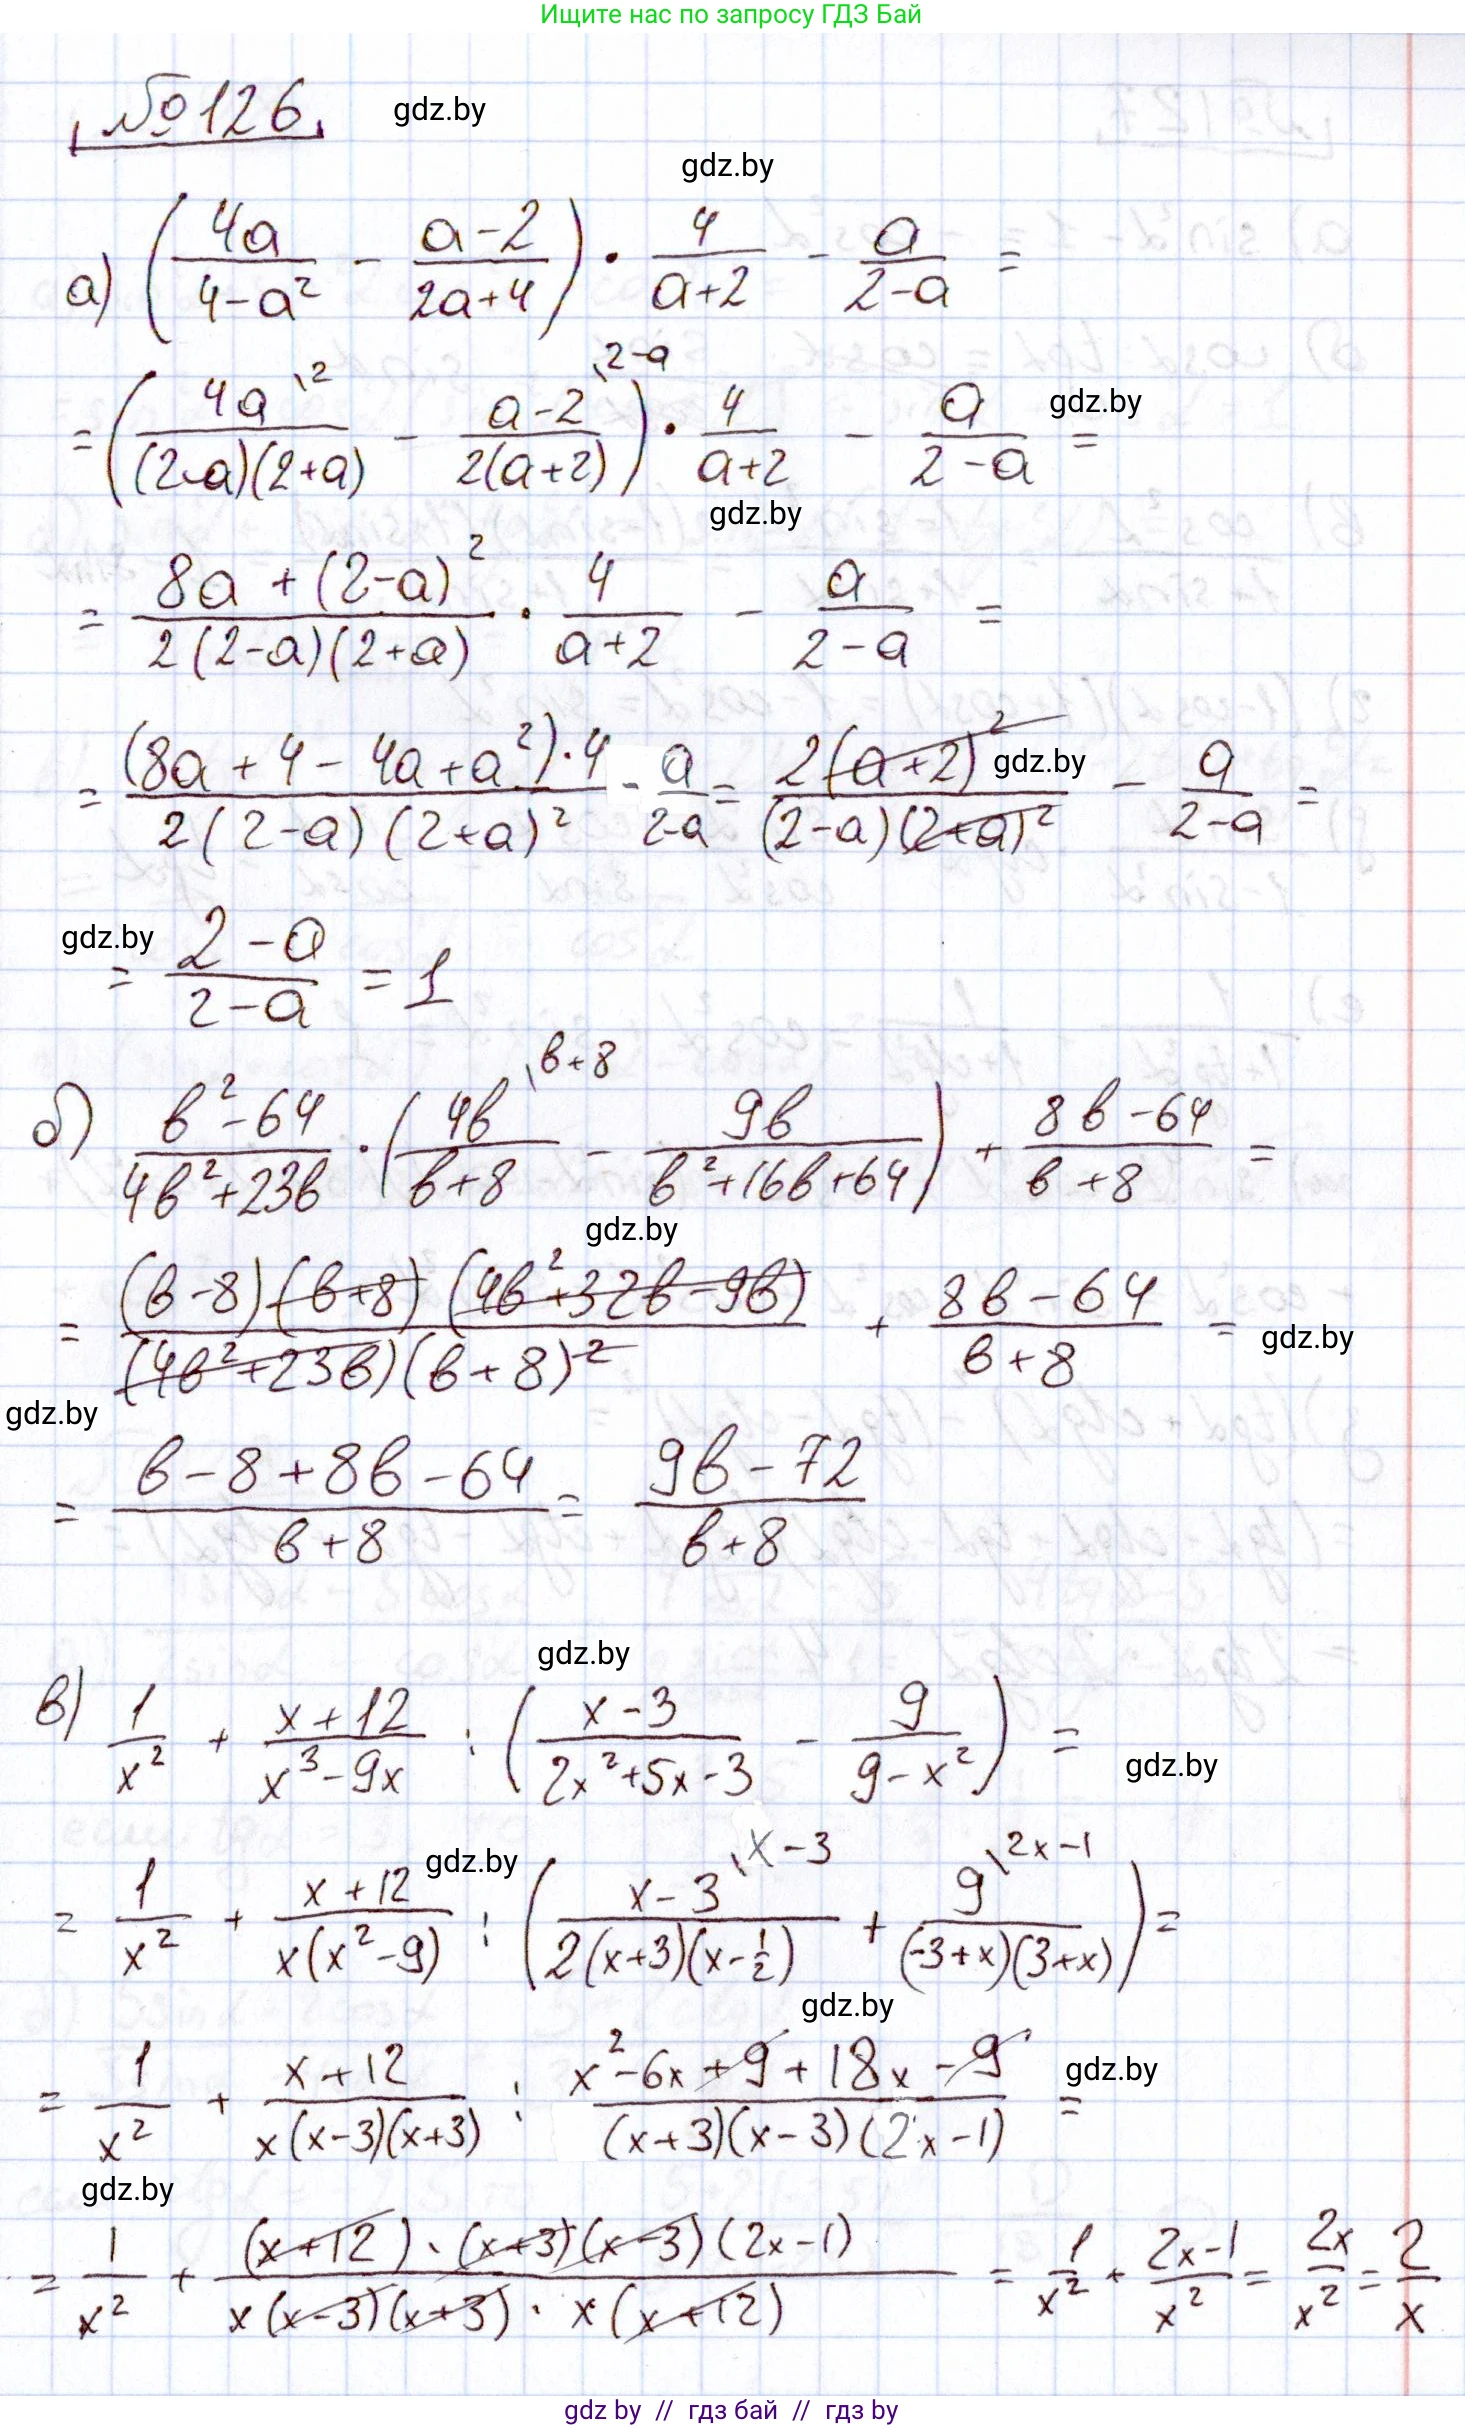 Ищите нас по запросу ГДЗ Бай
№126 gdz.by
gdz.by
а) (4a/(4-a²) - (a-2)/(2a+4)) · 4/(a+2) - a/(2-a) =
= (4a\²/((2-a)(2+a)) - (a-2)\²⁻ᵃ/(2(a+2))) · 4/(a+2) - a/(2-a) = gdz.by
gdz.by
= (8a + (2-a)²)/(2(2-a)(2+a)) · 4/(a+2) - a/(2-a) =
= ((8a + 4 - 4a + a²)·4)/(2(2-a)(2+a)²) - a/(2-a) = 2(a+2)²/((2-a)(2+a)²) - a/(2-a) = gdz.by
gdz.by
= (2-a)/(2-a) = 1
б) (в²-64)/(4в²+23в) · (4в\ᵛ⁺⁸/(в+8) - 9в/(в²+16в+64)) + (8в-64)/(в+8) =
gdz.by
= ((в-8)(в+8)(4в²+32в-9в))/((4в²+23в)(в+8)²) + (8в-64)/(в+8) = gdz.by
gdz.by
= (в-8+8в-64)/(в+8) = (9в-72)/(в+8)
gdz.by
в) 1/x² + (x+12)/(x³-9x) : ((x-3)/(2x²+5x-3) - 9/(9-x²)) =
gdz.by
gdz.by
= 1/x² + (x+12)/(x(x²-9)) : ((x-3)\ˣ⁻³/(2(x+3)(x-1/2)) + 9\²ˣ⁻¹/((-3+x)(3+x))) =
gdz.by
= 1/x² + (x+12)/(x(x-3)(x+3)) : (x²-6x+9+18x-9)/((x+3)(x-3)(2x-1)) = gdz.by
gdz.by
= 1/x² + ((x+12)·(x+3)(x-3)(2x-1))/(x(x-3)(x+3)·x(x+12)) = 1/x² + (2x-1)/x² = 2x/x² = 2/x
gdz by // гдз бай // гдз by